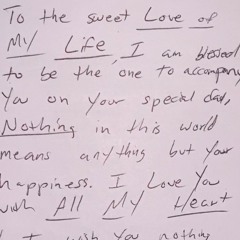 To the sweet Love of
My Life, I am blessed
to be the one to accompany
You on your special day,
Nothing in this world
means anything but your
happiness. I Love You
with All My Heart
I wish you nothing